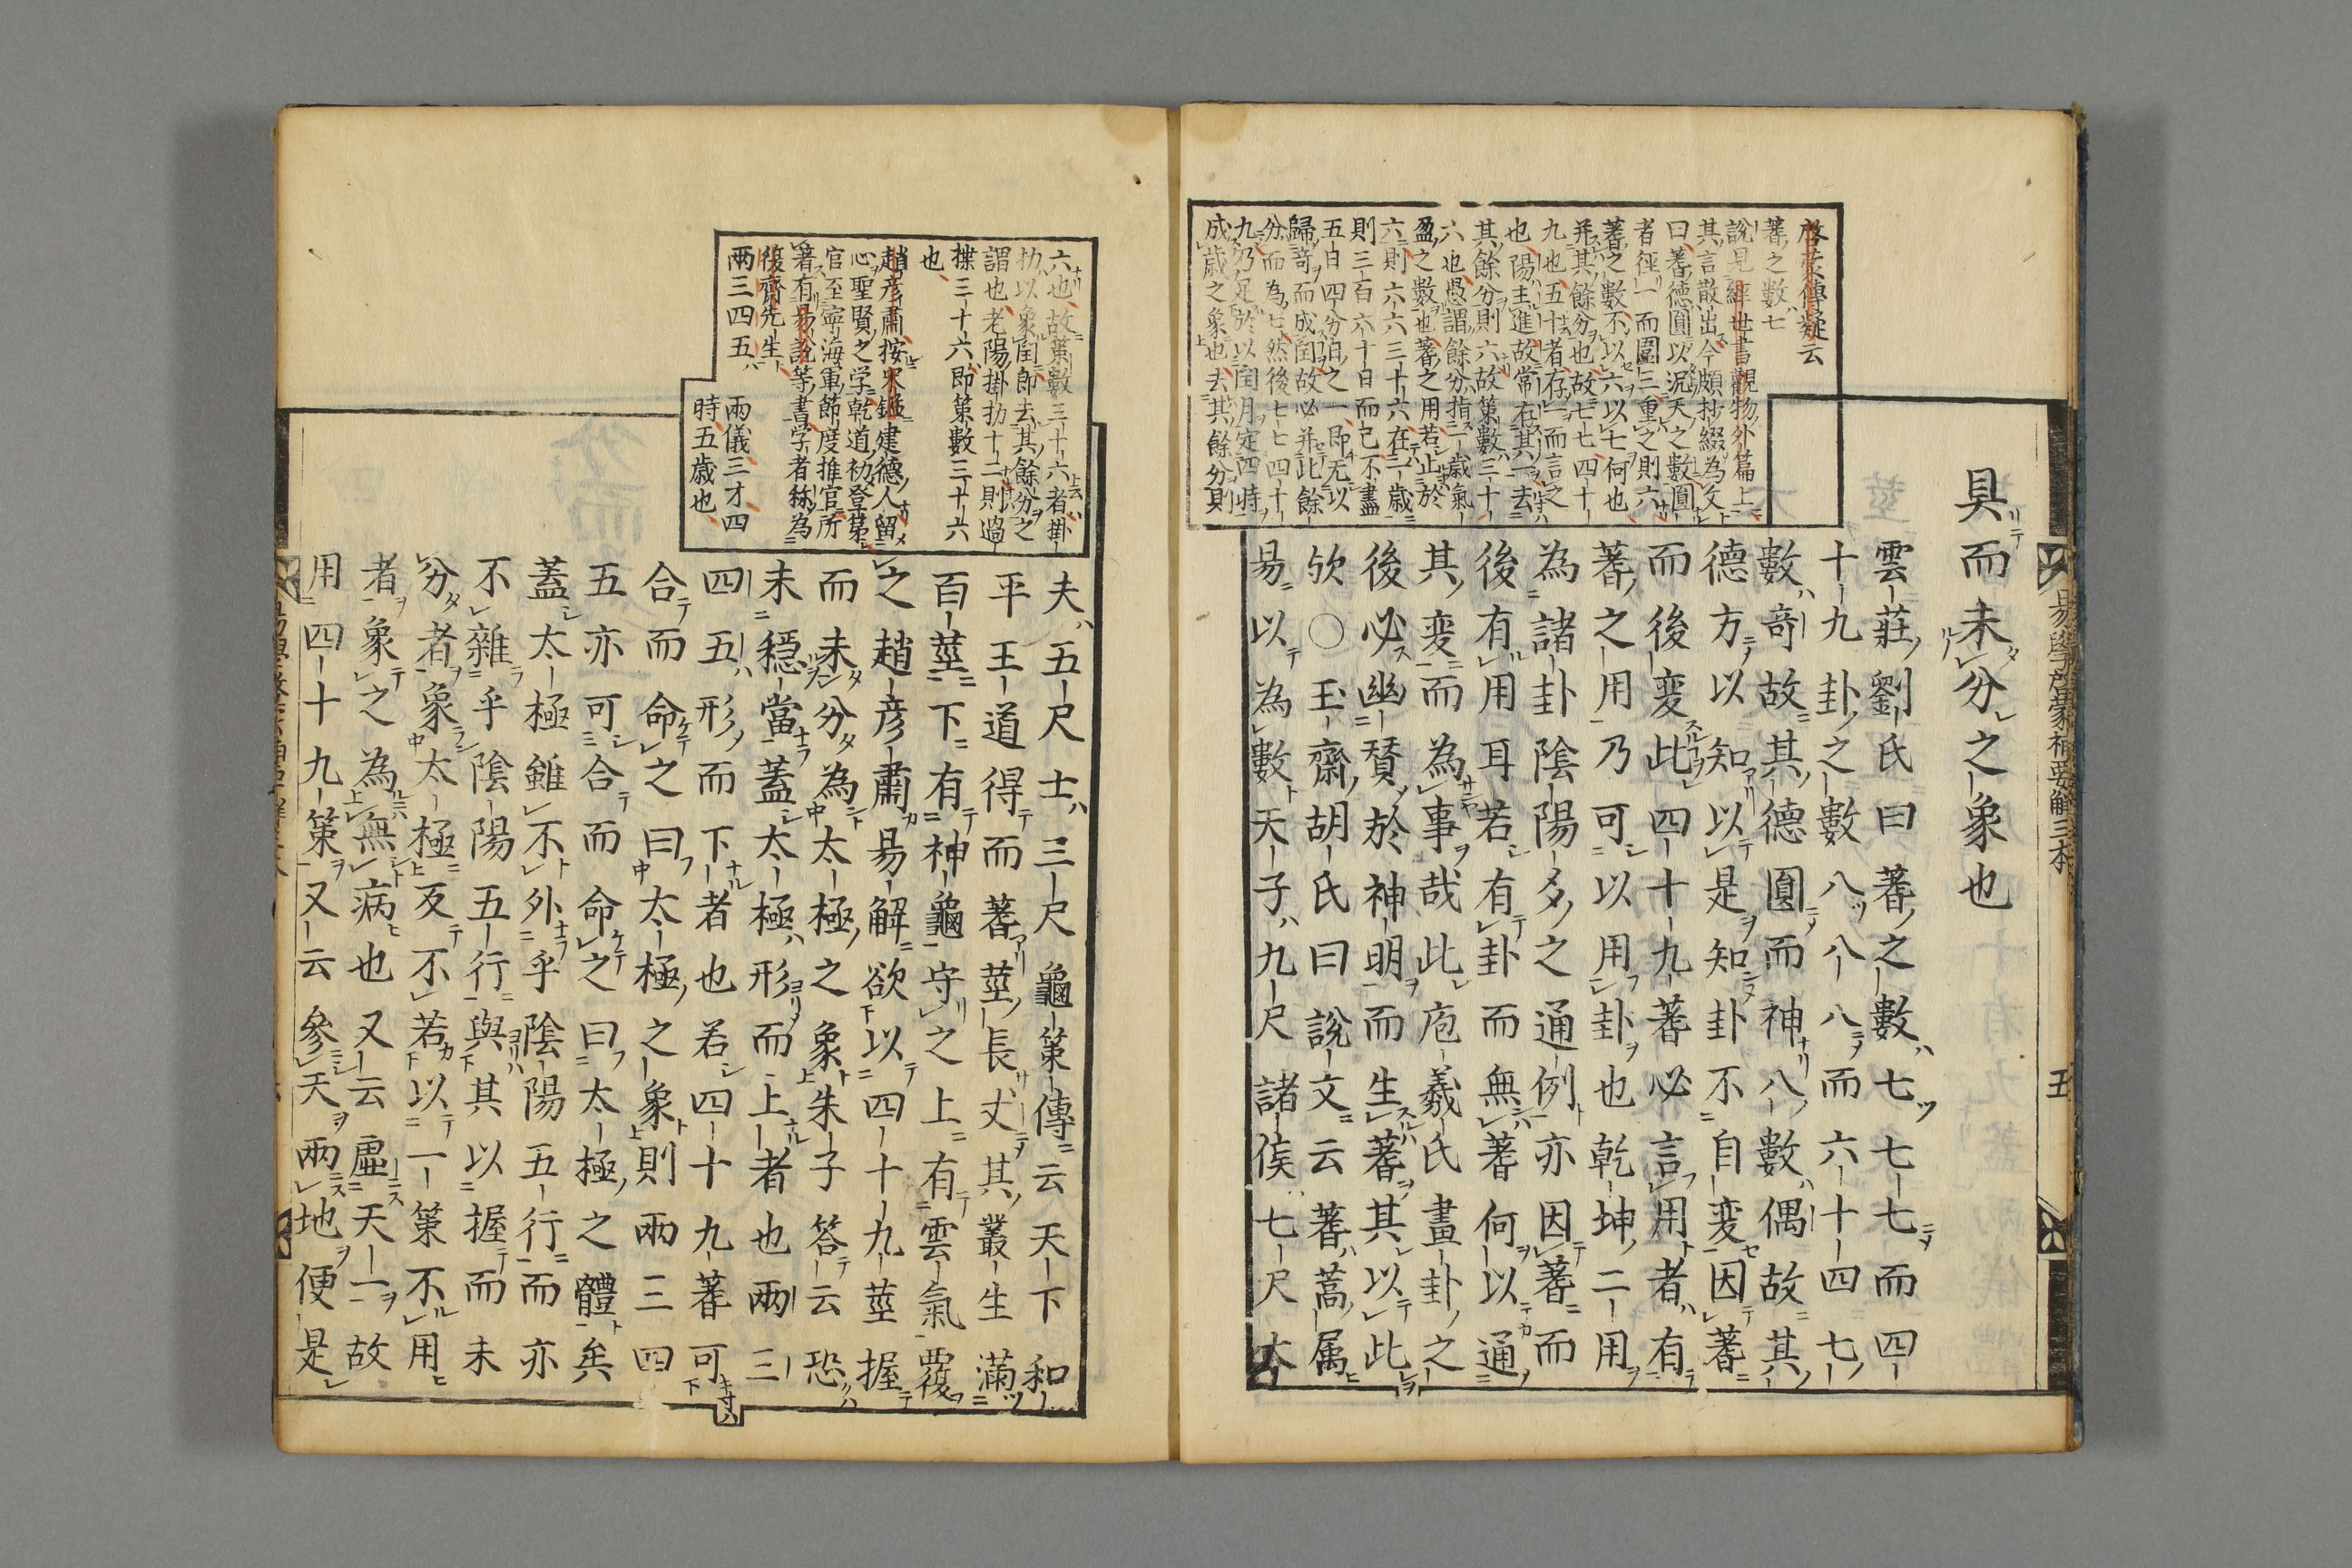 啓蒙傳疑云
蓍之數七
說見經世書觀物外篇上
其言散出今頗抄綴為文
曰蓍德圓以況天之數圓
者徑一而圍三重之則六
蓍之數不以六以七何也
并其餘分也故七七四十
九也五十者存一而言之
也陽主進故常在其一去
其餘分則六故策數三十
六也愚謂餘分指一歲氣
盈之數也蓍之用若止於
六則六六三十六在一歲
則三百六十日而已不盡
五日四分日之一即无以
歸竒而成閏故必并此餘
分而為七然後七七四十
九乃足於以閏月定四時
成歲之象也去其餘分則
具而未分之象也
雲莊劉氏曰蓍之數七七七而四
十九卦之數八八八而六十四七
數竒故其德圓而神八數偶故其
德方以知以是知卦不自変因蓍
而後変此四十九蓍必言用者有
蓍之用乃可以用卦也乾坤二用
為諸卦陰陽爻之通例亦因蓍而
後有用耳若有卦而無蓍何以通
其変而為事哉此庖羲氏畫卦之
後必幽賛於神明而生蓍其以此
欤○玉齋胡氏曰說文云蓍蒿属
易以為數天子九尺諸侯七尺大
易學啓蒙補要解三本
五
六也故策數三十六者掛
扐以象閏即去其餘分之
謂也老陽掛扐十二則過
揲三十六即策數三十六
也
趙彦肅按宋鉅建德人留
心聖賢之学乾道初登第
官至寧海軍節度推官所
著有易說等書学者称為
復齋先生
兩三四五
兩儀三才四
時五歲也
夫五尺士三尺龜策傳云天下和
平王道得而蓍莖長丈其叢生滿
百莖下有神龜守之上有雲氣覆
之趙彦肅易解欲以四十九莖握
而未分為太極之象朱子答云恐
未穩當蓋太極形而上者也兩三
四五形而下者也若四十九蓍可
合而命之曰太極之象則兩三四
五亦可合而命之曰太極之體矣
蓋太極雖不外乎陰陽五行而亦
不雜乎陰陽五行與其以握而未
分者象太極反不若以一策不用
者象之為無病也又云虛天一故
用四十九策又云參天兩地便是